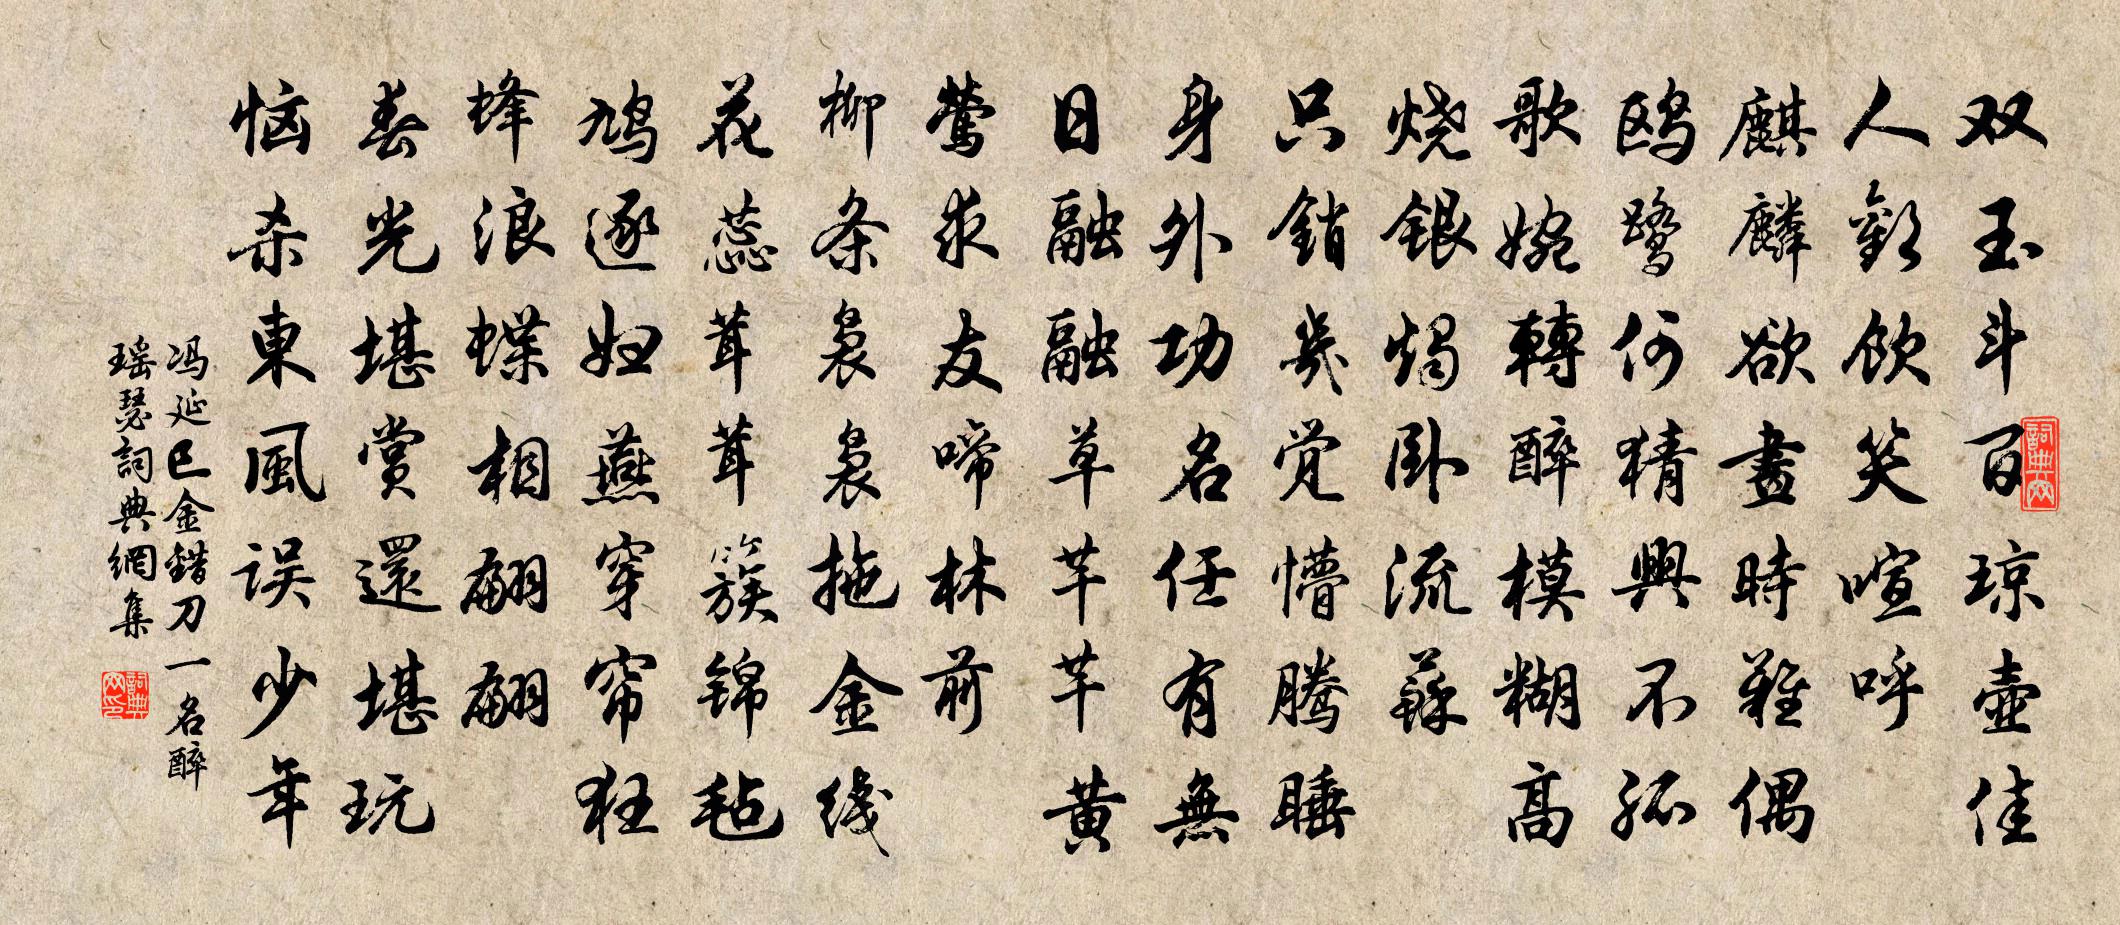 双玉斗百琼壶佳
人歡飲笑喧呼
麒麟欲畫時難偶
鸥鹭何猜興不孤
歌婉轉醉模糊高
烧银燭卧流蘇
只銷幾觉懵腾睡
身外功名任有無
日融融草芊芊黄
莺求友啼林前
柳条袅袅拖金线
花蕊茸茸簇锦毡
鸠逐妇燕穿帘狂
蜂浪蝶相翩翩
春光堪赏還堪玩
恼杀東風误少年
冯延巳金錯刀一名醉
瑶瑟詞典網集
詞典网
詞典网印